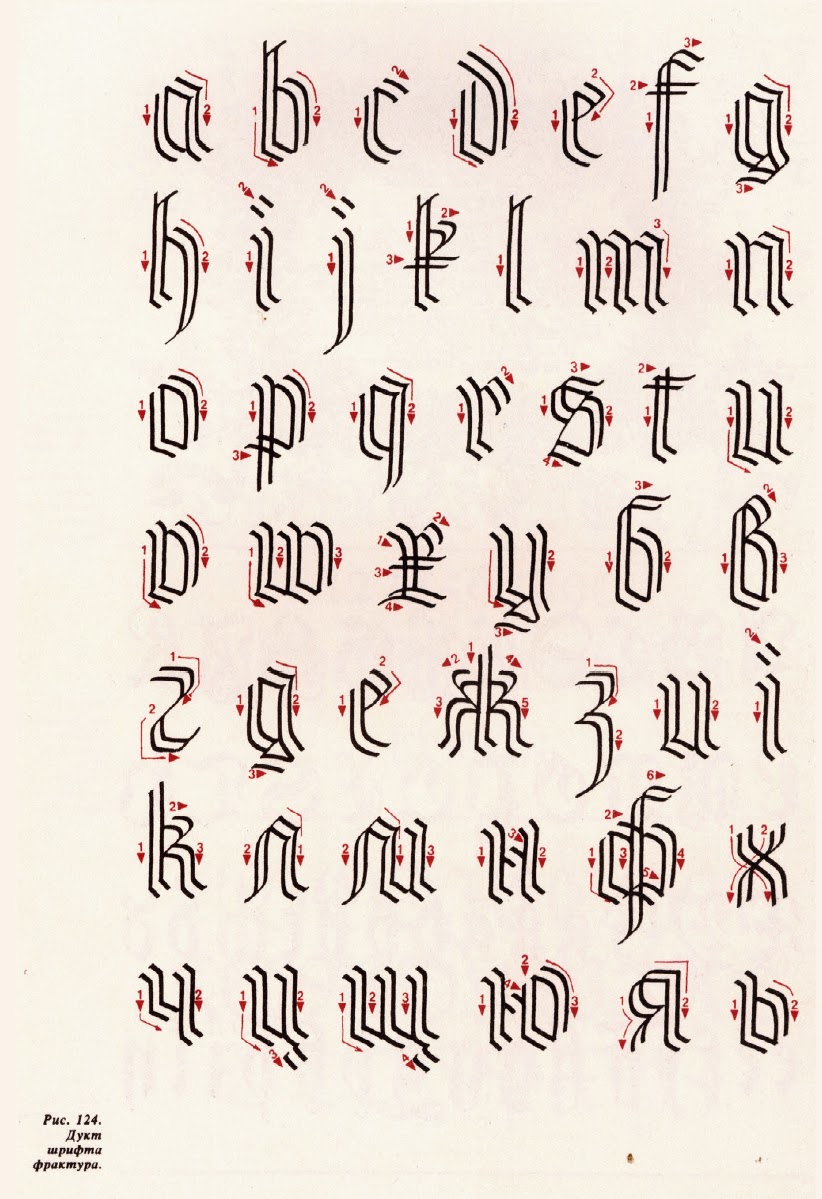 a b c d e f g
h i j k l m n
o p q r s t u
v w x y б в
г g e ж з и ï
k л м н ф х
ч ц щ ю я ь
Рис. 124.
Дукт
шрифта
фрактура.